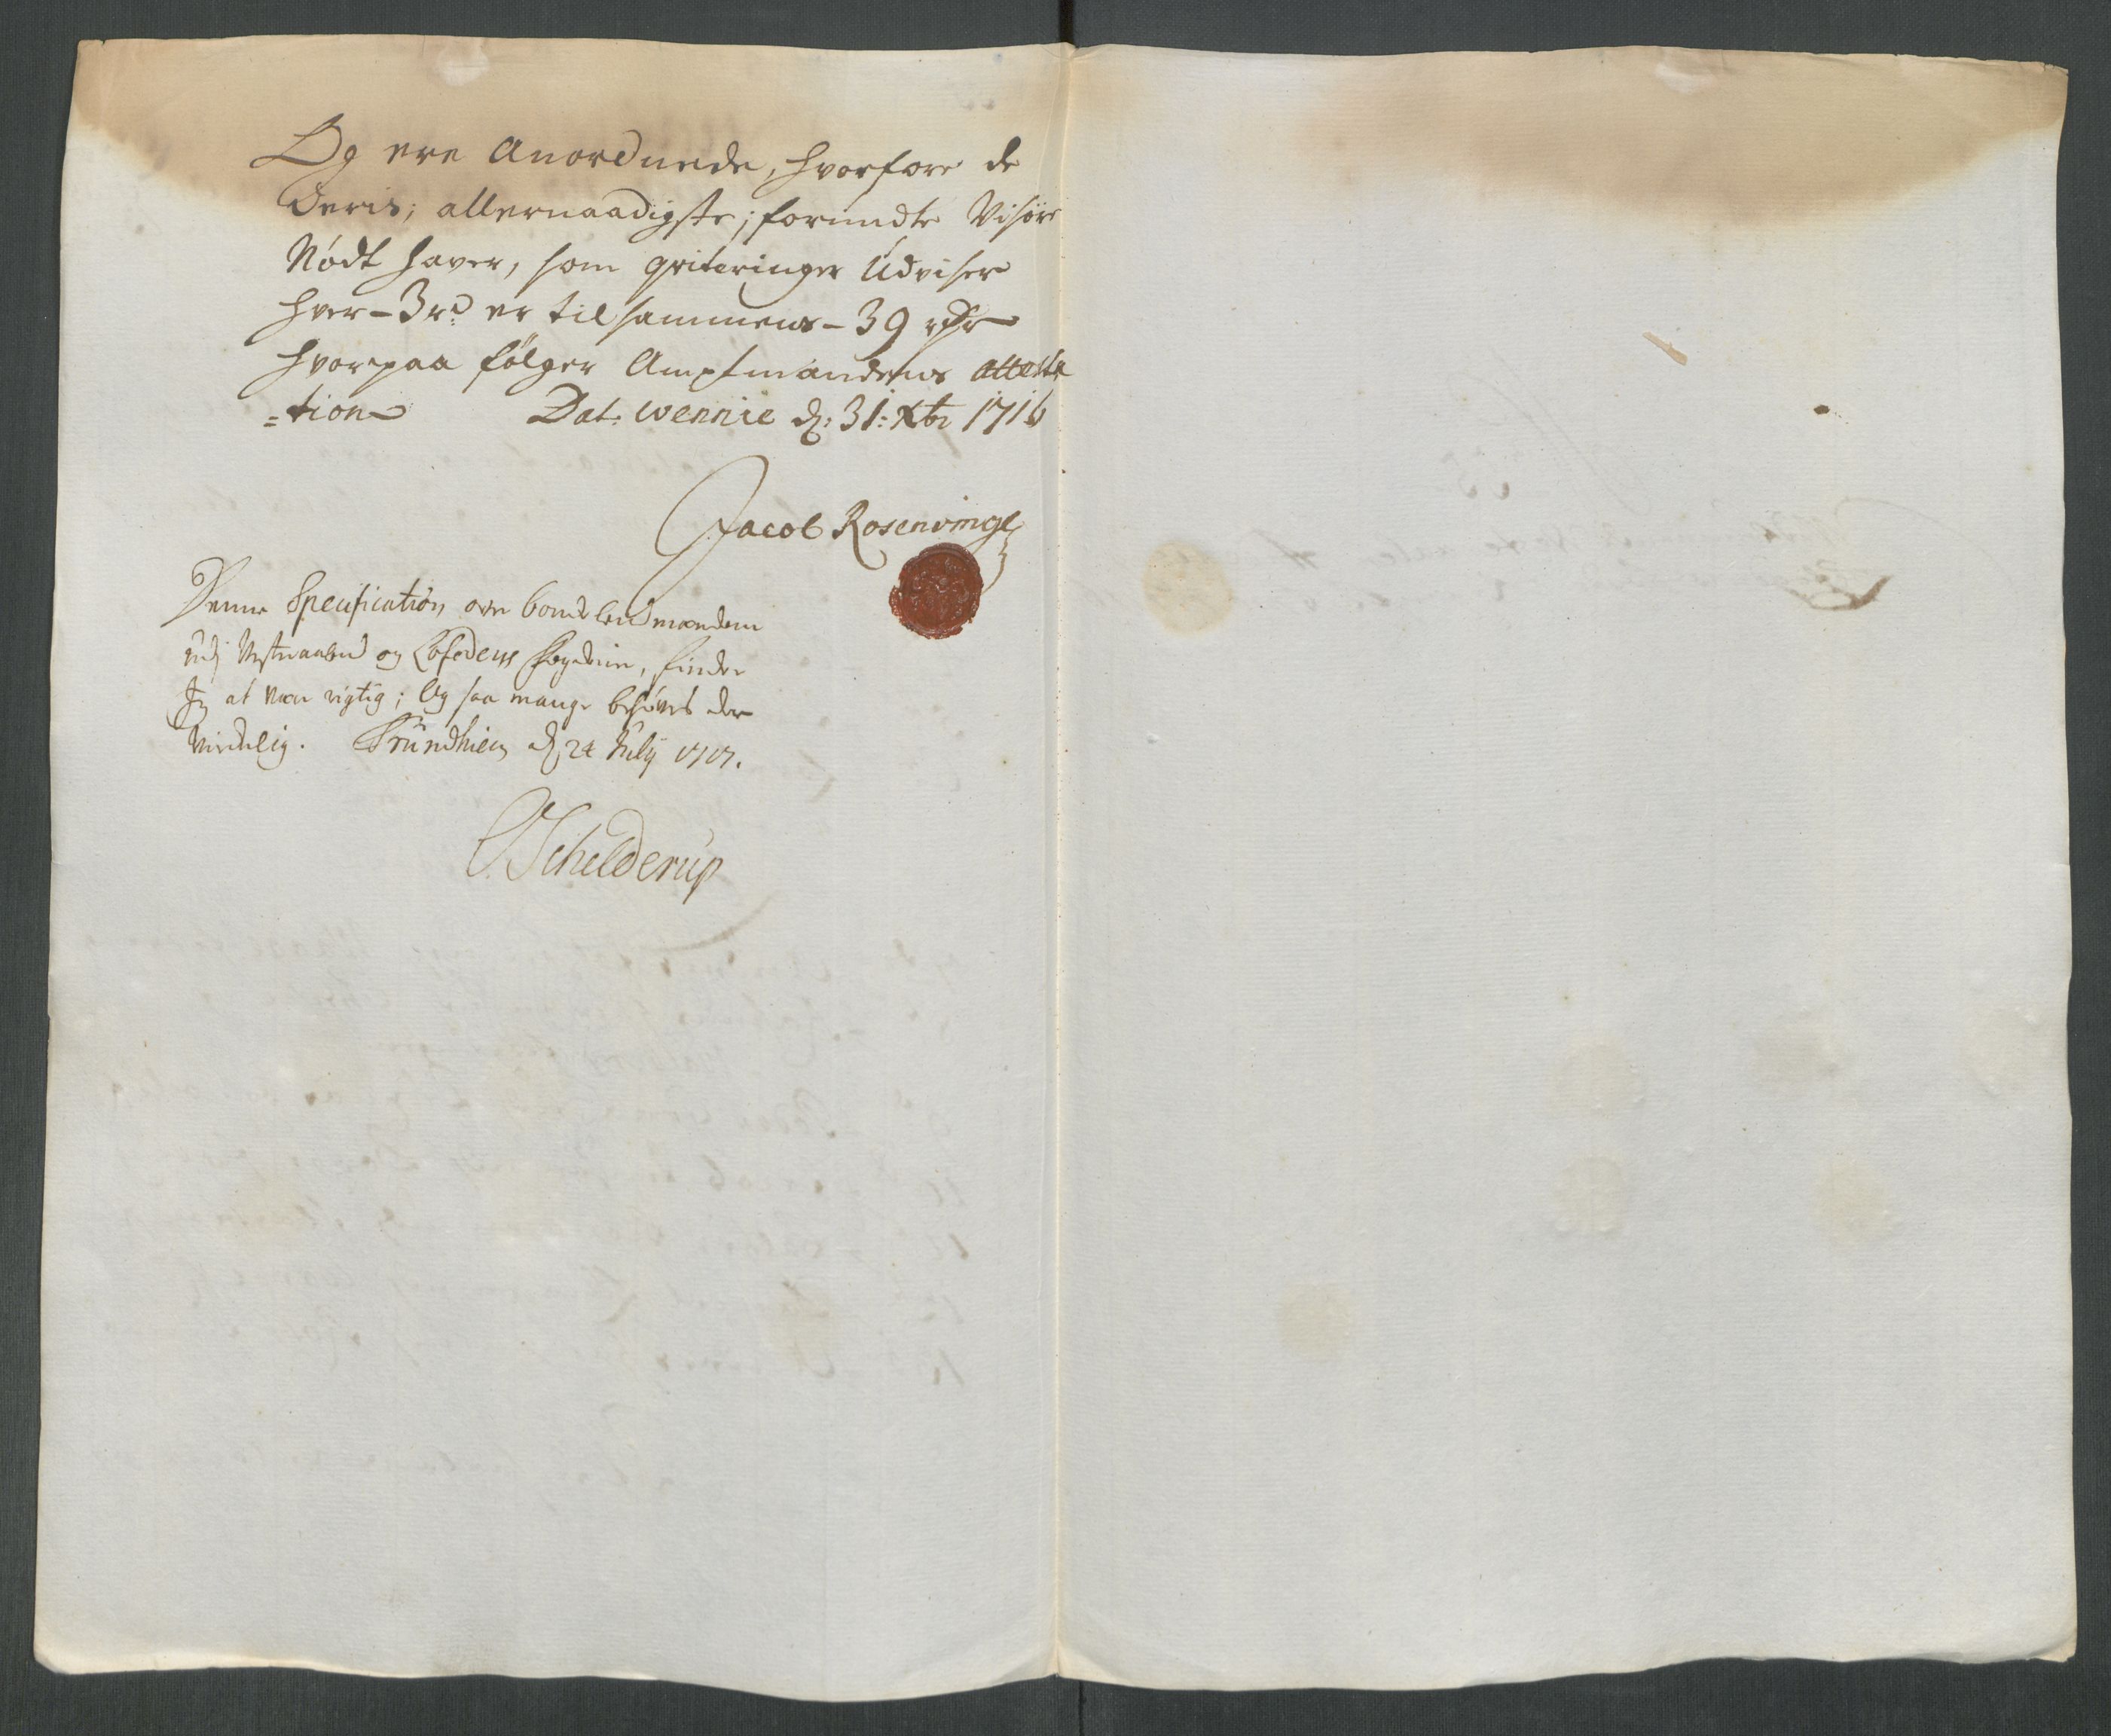 Og ere Anordnede, hvorfore de
Deris; allernaadigste; forundte Visøre
Nødt haver, som qviteringer Udviser
hver - 3 rd er tilsammens - 39 rdr
hvorpaa følger Amptmandens attesta
=tion Dat. Wennie d: 31: Xbr 1716
Jacob Rosenvinge
Denne Specification over bonde lensmændene
udj Vestraalen og Lofodens fogderie, finder
Jeg at være rigtig; Og saa mange behøves der
Virkelig. Trundhiem d 24 July 1717.
Schelderup